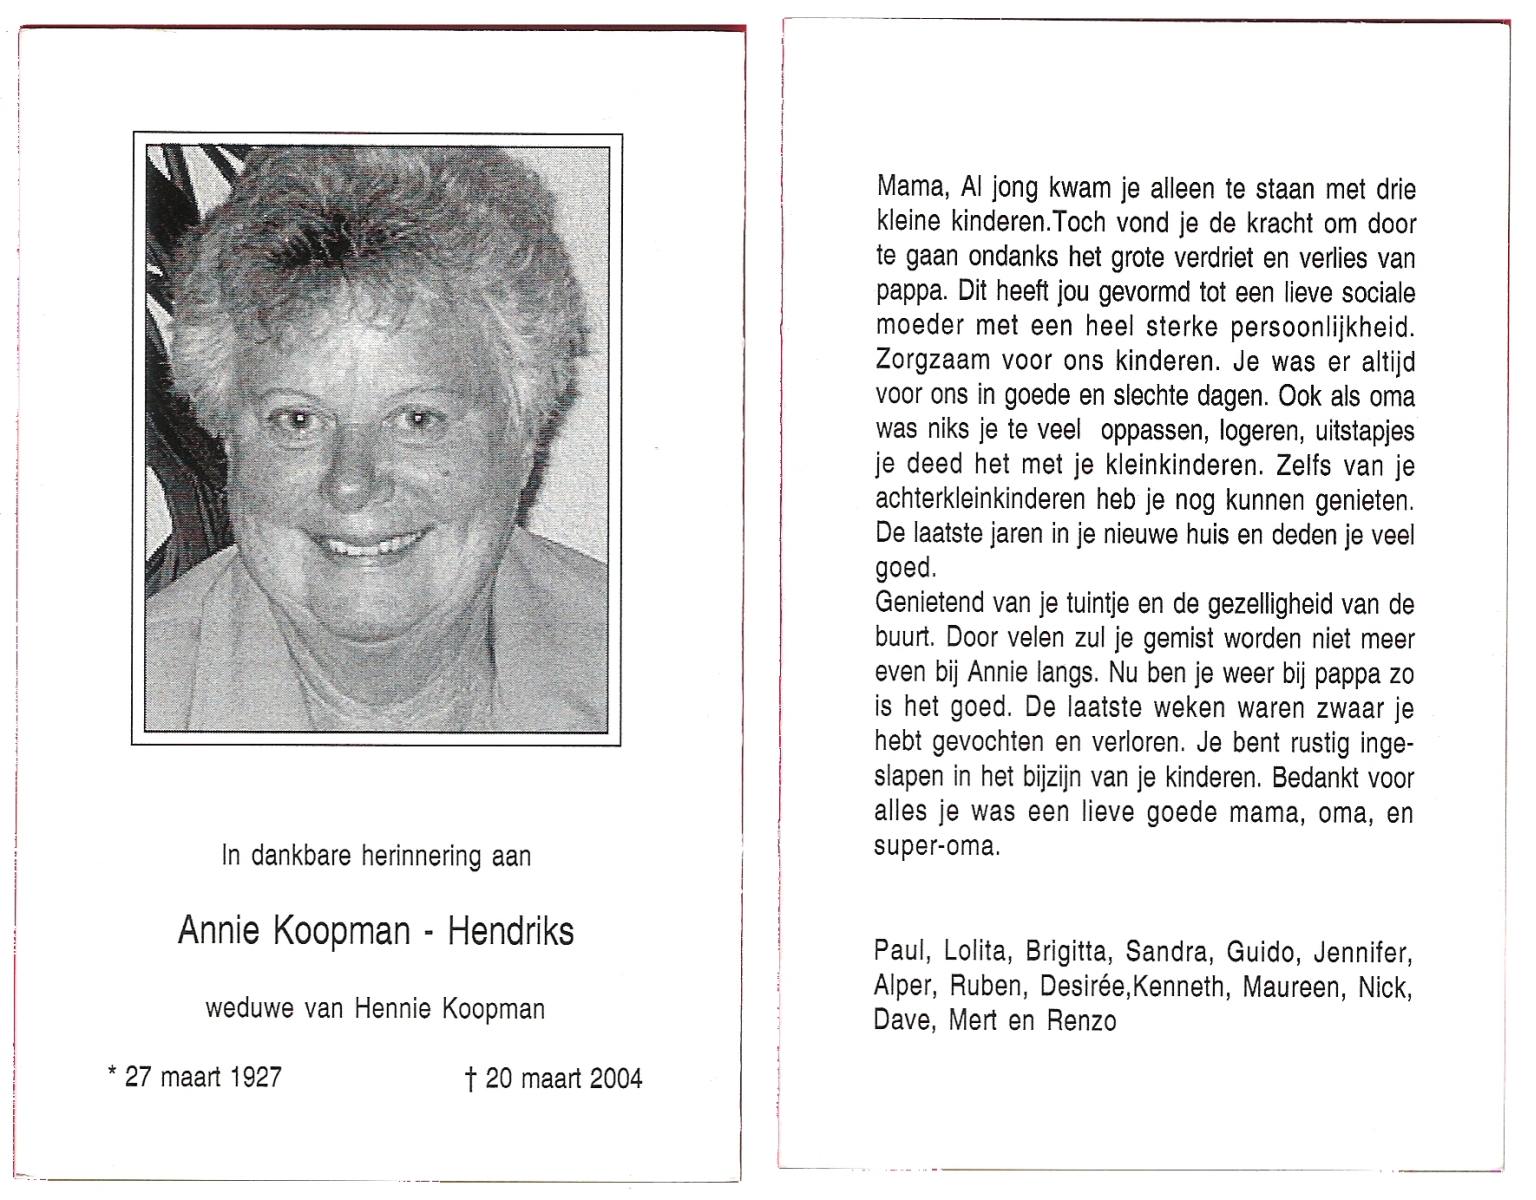 In dankbare herinnering aan
Annie Koopman - Hendriks
weduwe van Hennie Koopman
* 27 maart 1927 † 20 maart 2004
Mama, Al jong kwam je alleen te staan met drie
kleine kinderen.Toch vond je de kracht om door
te gaan ondanks het grote verdriet en verlies van
pappa. Dit heeft jou gevormd tot een lieve sociale
moeder met een heel sterke persoonlijkheid.
Zorgzaam voor ons kinderen. Je was er altijd
voor ons in goede en slechte dagen. Ook als oma
was niks je te veel  oppassen, logeren, uitstapjes
je deed het met je kleinkinderen. Zelfs van je
achterkleinkinderen heb je nog kunnen genieten.
De laatste jaren in je nieuwe huis en deden je veel
goed.
Genietend van je tuintje en de gezelligheid van de
buurt. Door velen zul je gemist worden niet meer
even bij Annie langs. Nu ben je weer bij pappa zo
is het goed. De laatste weken waren zwaar je
hebt gevochten en verloren. Je bent rustig inge-
slapen in het bijzijn van je kinderen. Bedankt voor
alles je was een lieve goede mama, oma, en
super-oma.
Paul, Lolita, Brigitta, Sandra, Guido, Jennifer,
Alper, Ruben, Desirée,Kenneth, Maureen, Nick,
Dave, Mert en Renzo